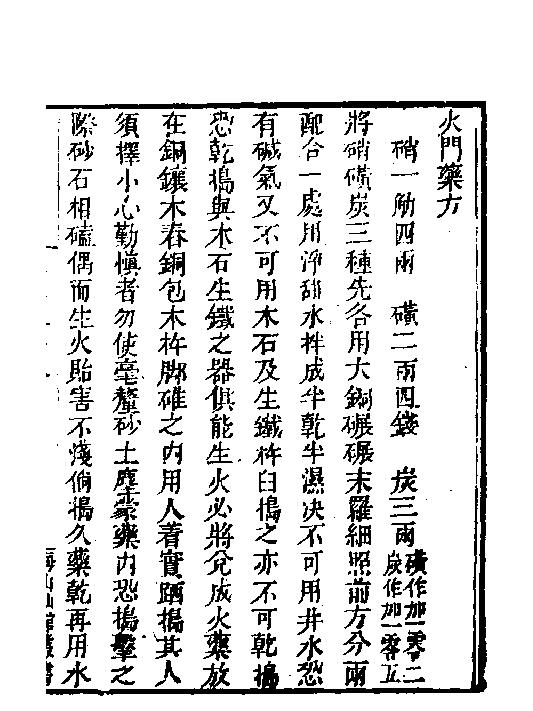 火門藥方
硝一觔四兩 磺二兩四錢 炭三兩 磺作加一零二
炭作加一零五
將硝磺炭三種先各用大銅碾碾末羅細照前方分兩
配合一處用淨甜水拌成半乾半濕决不可用井水恐
有碱氣又不可用木石及生鐵杵臼搗之亦不可乾搗
恐乾搗與木石生鐵之器俱能生火必將兌成火藥放
在銅鑲木舂銅包木杵脚碓之内用人着實踊搗其人
須擇小心勤慎者勿使毫釐砂土塵霾藥内恐搗擊之
際砂石相磕偶而生火貽害不淺倘搗久藥乾再用水
海山仙館叢書